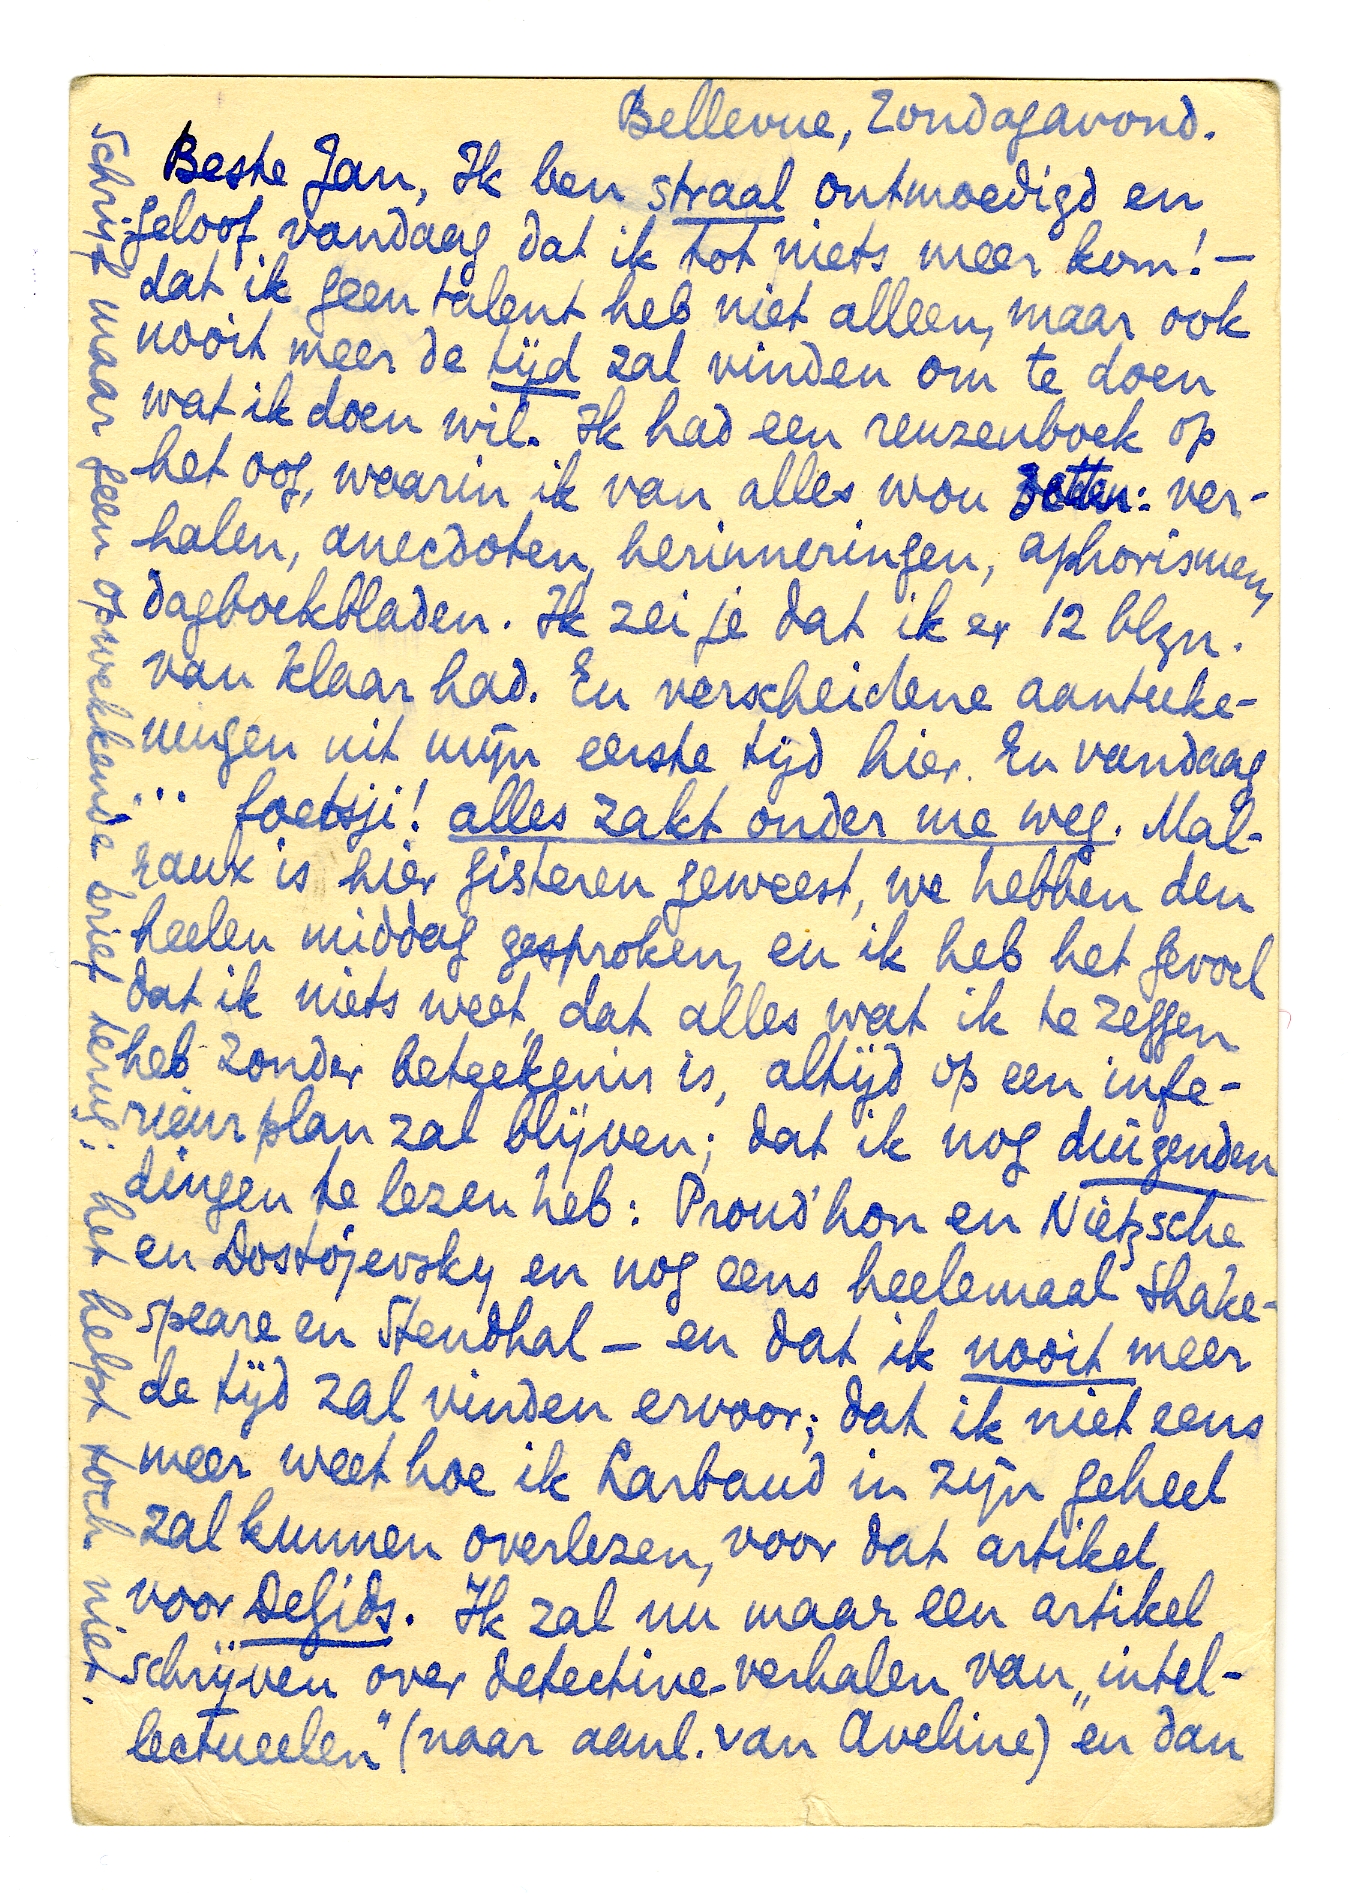 Bellevue, Zondagavond.
Beste Jan, Ik ben straal ontmoedigd en
geloof vandaag dat ik tot niets meer kom! –
dat ik geen talent heb niet alleen, maar ook
nooit meer de tijd zal vinden om te doen
wat ik doen wil. Ik had een reuzenboek op
het oog, waarin ik van alles wou zetten: ver-
halen, anecdoten, herinneringen, aphorismen,
dagboekbladen. Ik zei je dat ik er 12 blzn.
van klaar had. En verscheidene aanteeke-
ningen uit mijn eerste tijd hier. En vandaag
... foetsji! alles zakt onder me weg. Mal-
raux is hier gisteren geweest, we hebben den
heelen middag gesproken, en ik heb het gevoel
dat ik niets weet, dat alles wat ik te zeggen
heb zonder beteekenis is, altijd op een infe-
rieur plan zal blijven; dat ik nog duizenden
dingen te lezen heb: Proud'hon en Nietzsche
en Dostojevsky en nog eens heelemaal Shake-
speare en Stendhal – en dat ik nooit meer
de tijd zal vinden ervoor; dat ik niet eens
meer weet hoe ik Larbaud in zijn geheel
zal kunnen overlezen, voor dat artikel
voor De Gids. Ik zal nu maar een artikel
schrijven over detective-verhalen van „intel-
lectueelen" (naar aanl. van Aveline) en dan
Schrijf maar geen opwekkende brief terug: het helpt toch niet.